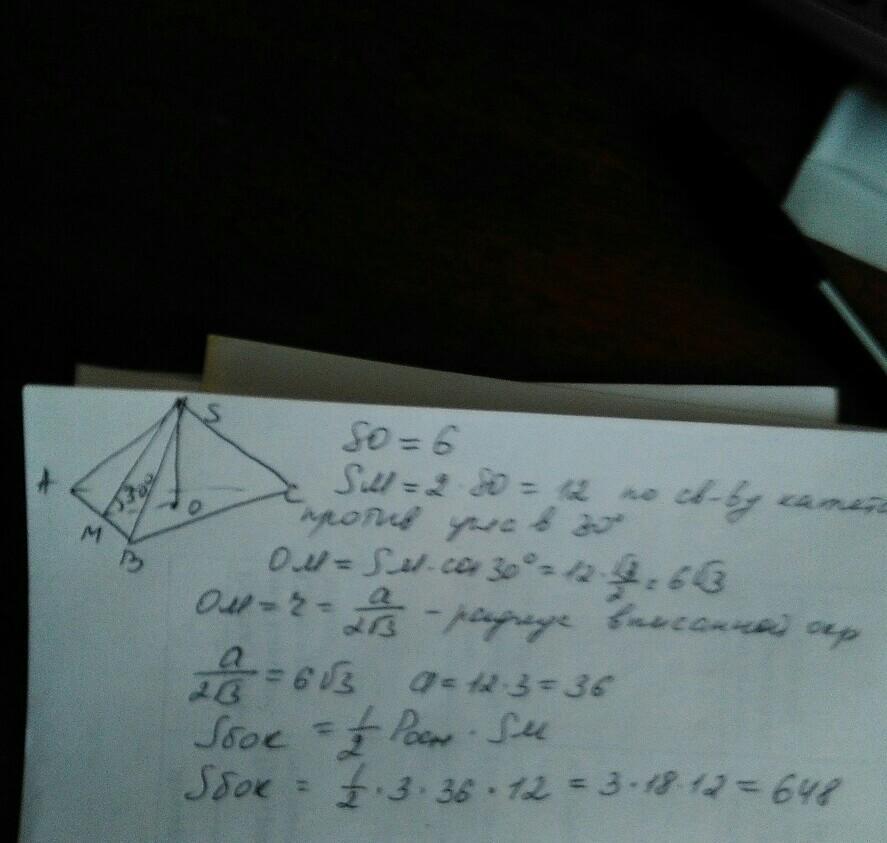 S
A
30°
O
C
M
B
SO = 6
SM = 2 · SO = 12 по св-ву катета
против угла в 30°
OM = SM · cos 30° = 12 · √3/2 = 6√3
OM = r = a/2√3 – радиус вписанной окр
a/2√3 = 6√3 a = 12 · 3 = 36
Sбок = 1/2 Pосн · SM
Sбок = 1/2 · 3 · 36 · 12 = 3 · 18 · 12 = 648